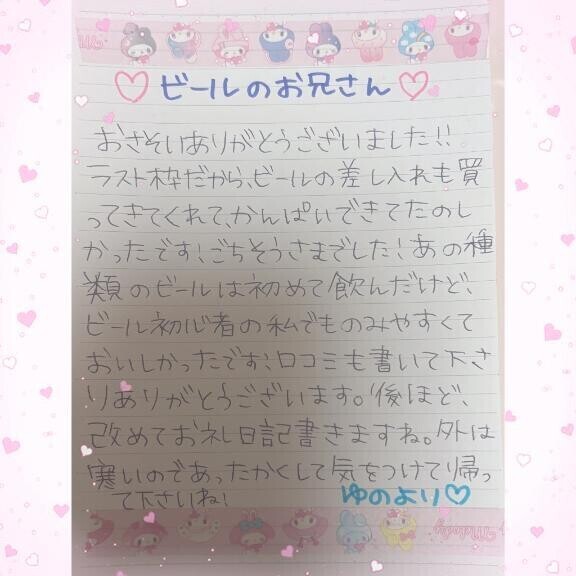 ♡ビールのお兄さん♡
おさそいありがとうございました!!
ラスト枠だから、ビールの差し入れも買
ってきてくれて、かんぱいできてたのし
かったです!ごちそうさまでした!あの種
類のビールは初めて飲んだけど、
ビール初心者の私でものみやすくて
おいしかったです!口コミも書いて下さ
りありがとうございます。後ほど、
改めてお礼日記書きますね。外は
寒いのであったかくして気をつけて帰っ
て下さいね!
ゆのより♡
Melody